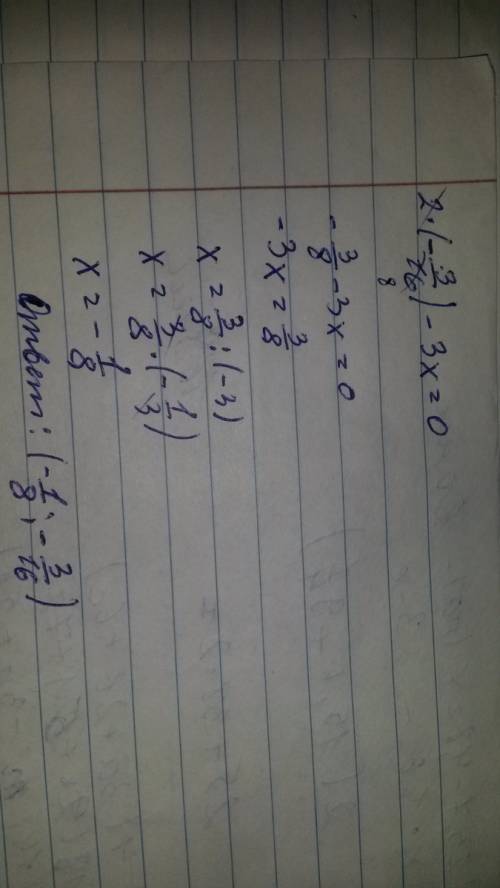 2·(-3/16) - 3x = 0
8
-3/8 - 3x = 0
-3x = 3/8
x = 3/8 : (-3)
x = 3/8 · (-1/3)
x = -1/8
Ответ: (-1/8; -3/16)